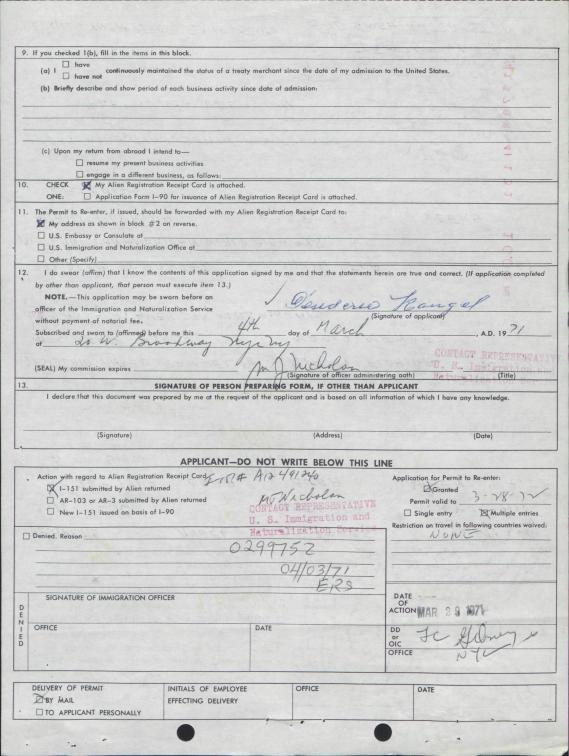 9. If you checked 1(b), fill in the items in this block.
(a) I ☐ have
☐ have not
continuously maintained the status of a treaty merchant since the date of my admission to the United States.
(b) Briefly describe and show period of each business activity since date of admission:
(c) Upon my return from abroad I intend to—
☐ resume my present business activities
☐ engage in a different business, as follows:
10. CHECK ☒ My Alien Registration Receipt Card is attached.
ONE: ☐ Application Form I-90 for issuance of Alien Registration Receipt Card is attached.
11. The Permit to Re-enter, if issued, should be forwarded with my Alien Registration Receipt Card to:
☒ My address as shown in block #2 on reverse.
☐ U.S. Embassy or Consulate at
☐ U.S. Immigration and Naturalization Office at
☐ Other (Specify)
12. I do swear (affirm) that I know the contents of this application signed by me and that the statements herein are true and correct. (If application completed
by other than applicant, that person must execute item 13.)
NOTE.—This application may be sworn before an
officer of the Immigration and Naturalization Service
without payment of notarial fee.
Rangel
(Signature of applicant)
Subscribed and sworn to (affirmed) before me this 4th day of March, A.D. 1971
at 20 W. Broadway NY, NY
(SEAL) My commission expires
(Signature of officer administering oath)
(Title)
CONTACT REPRESENTATIVE
U. S. Immigration and
Naturalization
13. SIGNATURE OF PERSON PREPARING FORM, IF OTHER THAN APPLICANT
I declare that this document was prepared by me at the request of the applicant and is based on all information of which I have any knowledge.
(Signature) (Address) (Date)
APPLICANT—DO NOT WRITE BELOW THIS LINE
Action with regard to Alien Registration Receipt Card A12 491240
☒ I-151 submitted by Alien returned
☐ AR-103 or AR-3 submitted by Alien returned
☐ New I-151 issued on basis of I-90
CONTACT REPRESENTATIVE
U. S. Immigration and
Naturalization Service
Application for Permit to Re-enter:
☒ Granted
Permit valid to 3-28-72
☐ Single entry ☒ Multiple entries
Restriction on travel in following countries waived:
NONE
☐ Denied. Reason
0299752
04/03/71
ERS
DENIED
SIGNATURE OF IMMIGRATION OFFICER
OFFICE DATE
DATE OF ACTION MAR 29 1971
DD or OIC
OFFICE NYC
DELIVERY OF PERMIT
☒ BY MAIL
☐ TO APPLICANT PERSONALLY
INITIALS OF EMPLOYEE
EFFECTING DELIVERY
OFFICE
DATE